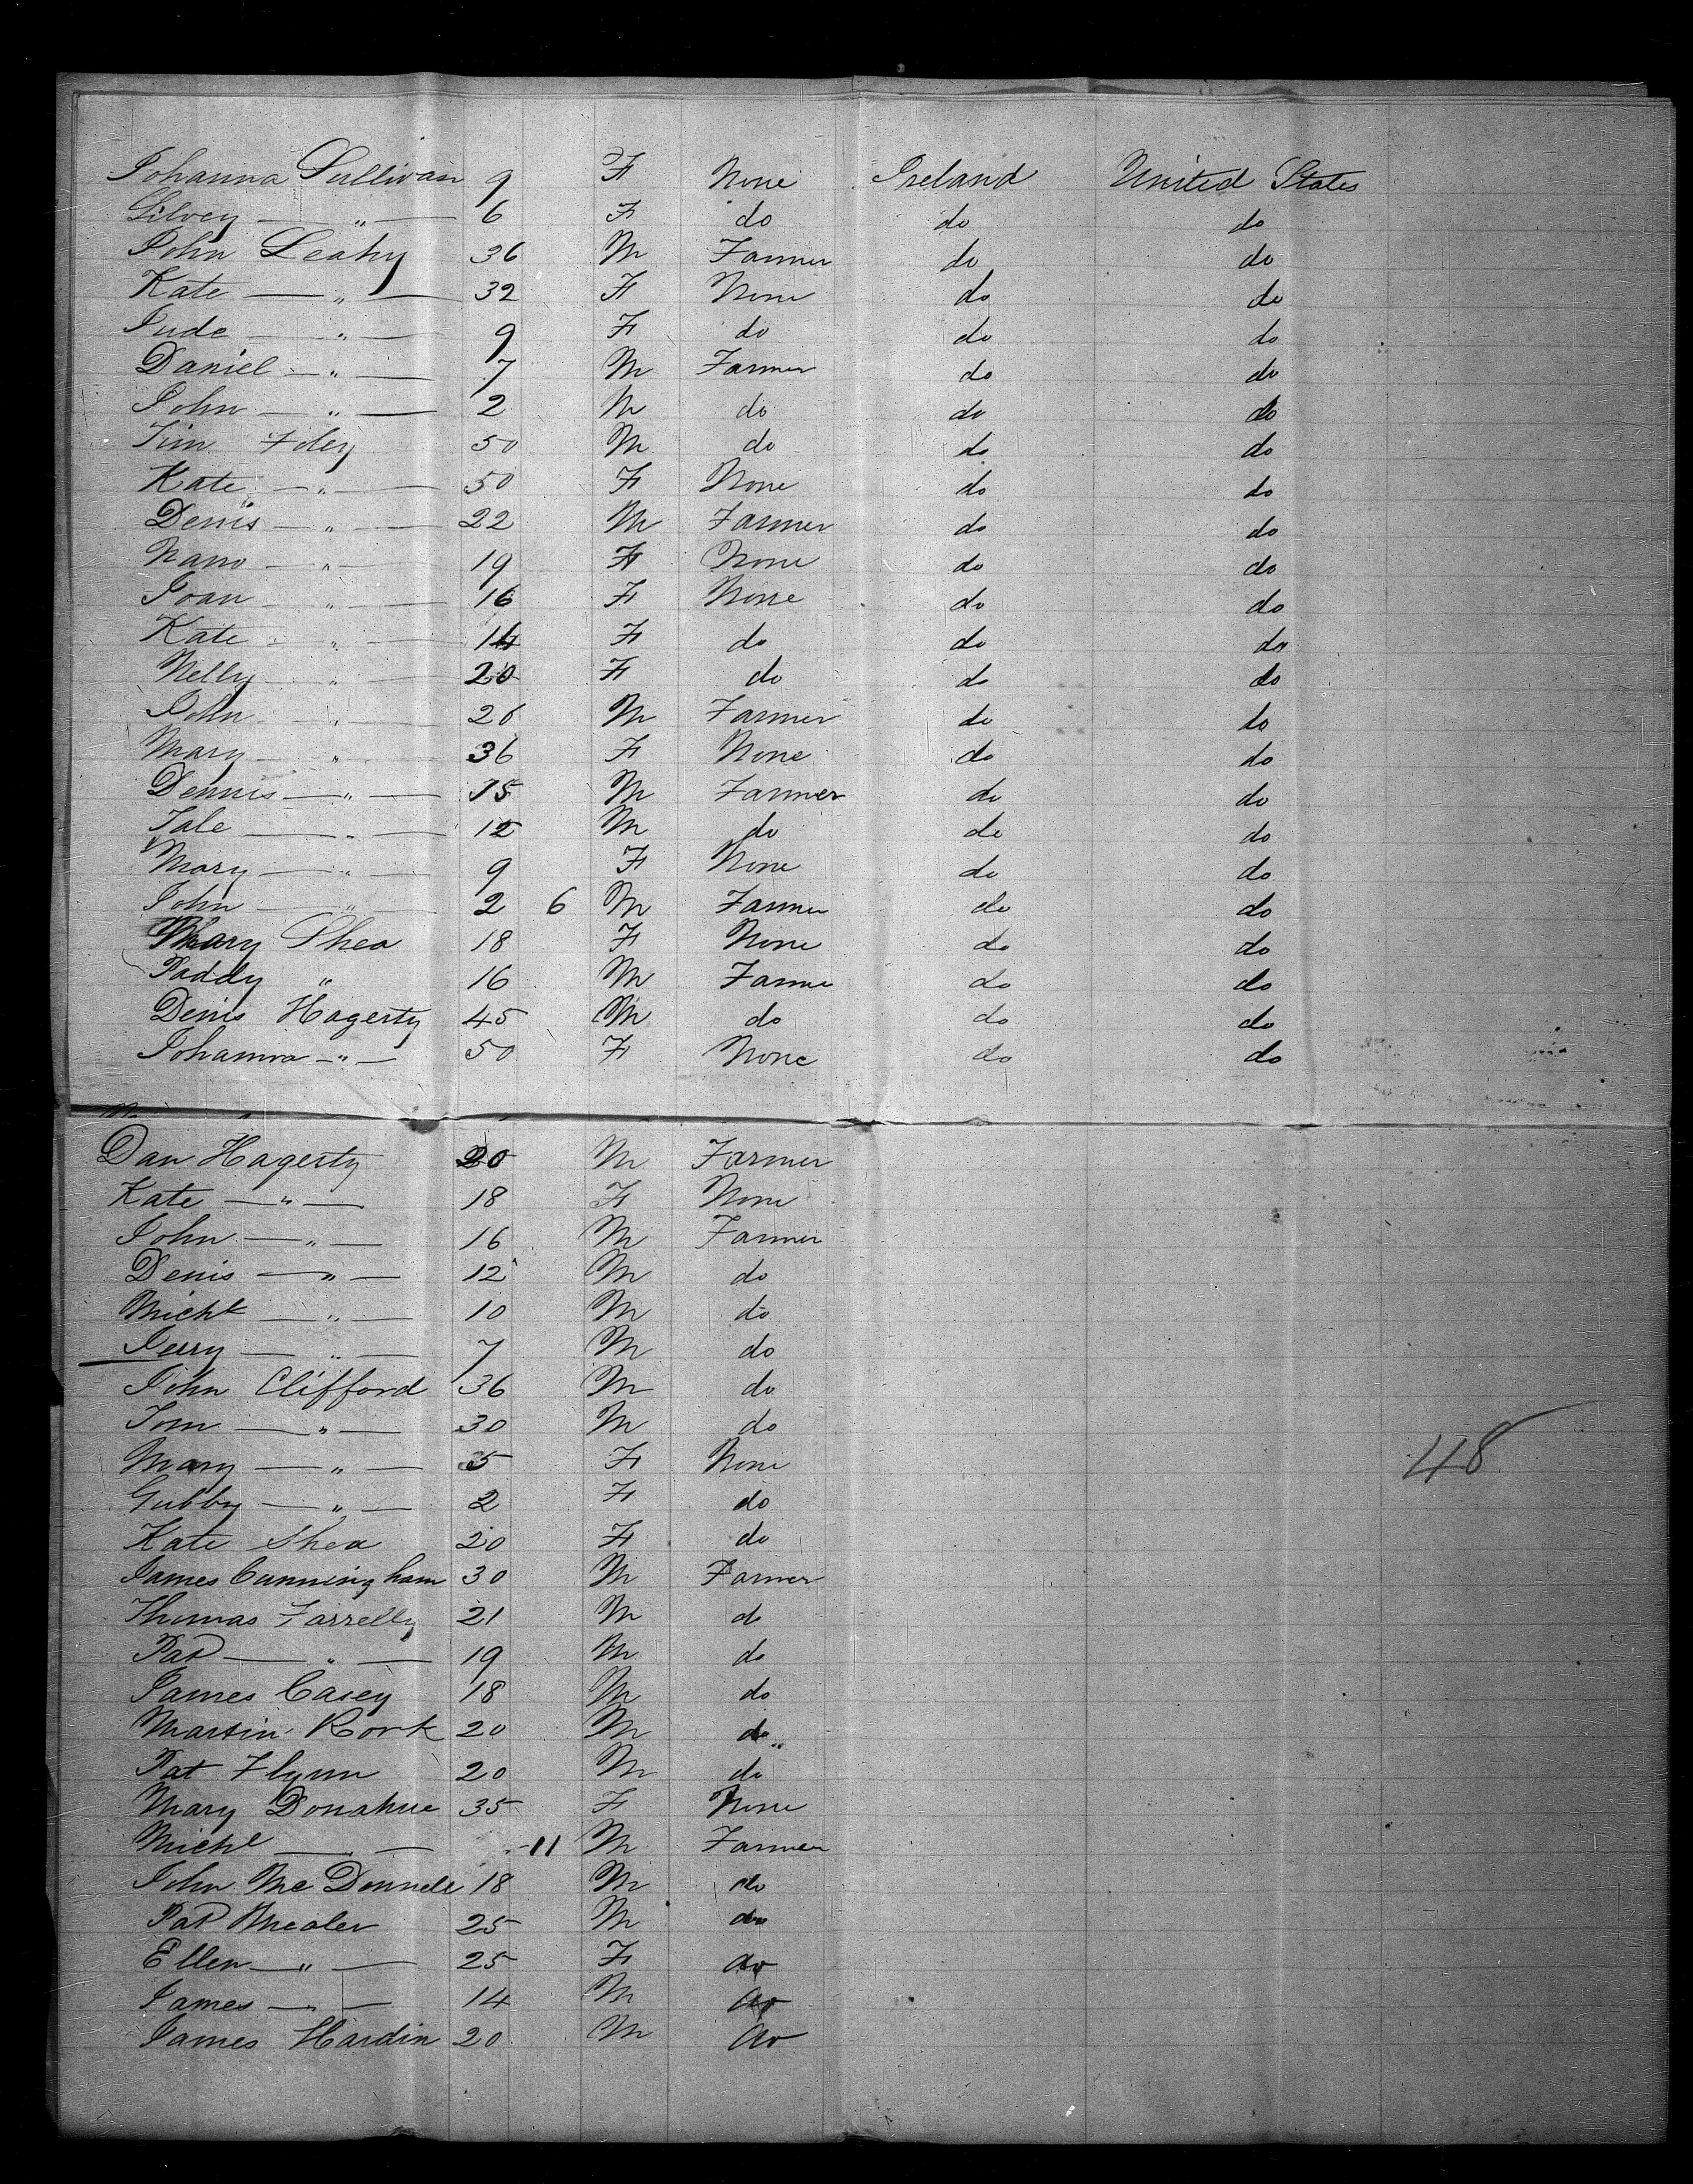 Johanna Sullivan 9 F None Ireland United States
Silvey — " — 6 F do do do
John Leahy 36 M Farmer do do
Kate — " — 32 F None do do
Jude — " — 9 F do do do
Daniel — " — 7 M Farmer do do
John — " — 2 M do do do
Tim Foley 50 M do do do
Kate — " — 50 F None do do
Denis — " — 22 M Farmer do do
Nano — " — 19 F None do do
Joan — " — 16 F None do do
Kate — " — 14 F do do do
Nelly — " — 20 F do do do
John — " — 26 M Farmer do do
Mary — " — 36 F None do do
Dennis — " — 15 M Farmer do do
Tale — " — 12 M do do do
Mary — " — 9 F None do do
John — " — 2 6 M Farmer do do
Mary Shea 18 F None do do
Paddy " 16 M Farmer do do
Denis Hagerty 45 M do do do
Johanna — " — 50 F None do do
Dan Hagerty 20 M Farmer
Kate — " — 18 F None
John — " — 16 M Farmer
Denis — " — 12 M do
Michl — " — 10 M do
Jerry — " — 7 M do
John Clifford 36 M do
Tom — " — 30 M do
Mary — " — 5 F None 48
Gubby — " — 2 F do
Kate Shea 20 F do
James Cunningham 30 M Farmer
Thomas Farrelly 21 M do
Pat — " — 19 M do
James Casey 18 M do
Martin Rork 20 M do
Pat Flynn 20 M do
Mary Donahue 35 F None
Michl — " — 11 M Farmer
John McDonnell 18 M do
Pat Mealer 25 M do
Ellen — " — 25 F do
James — " — 14 M do
James Hardin 20 M do